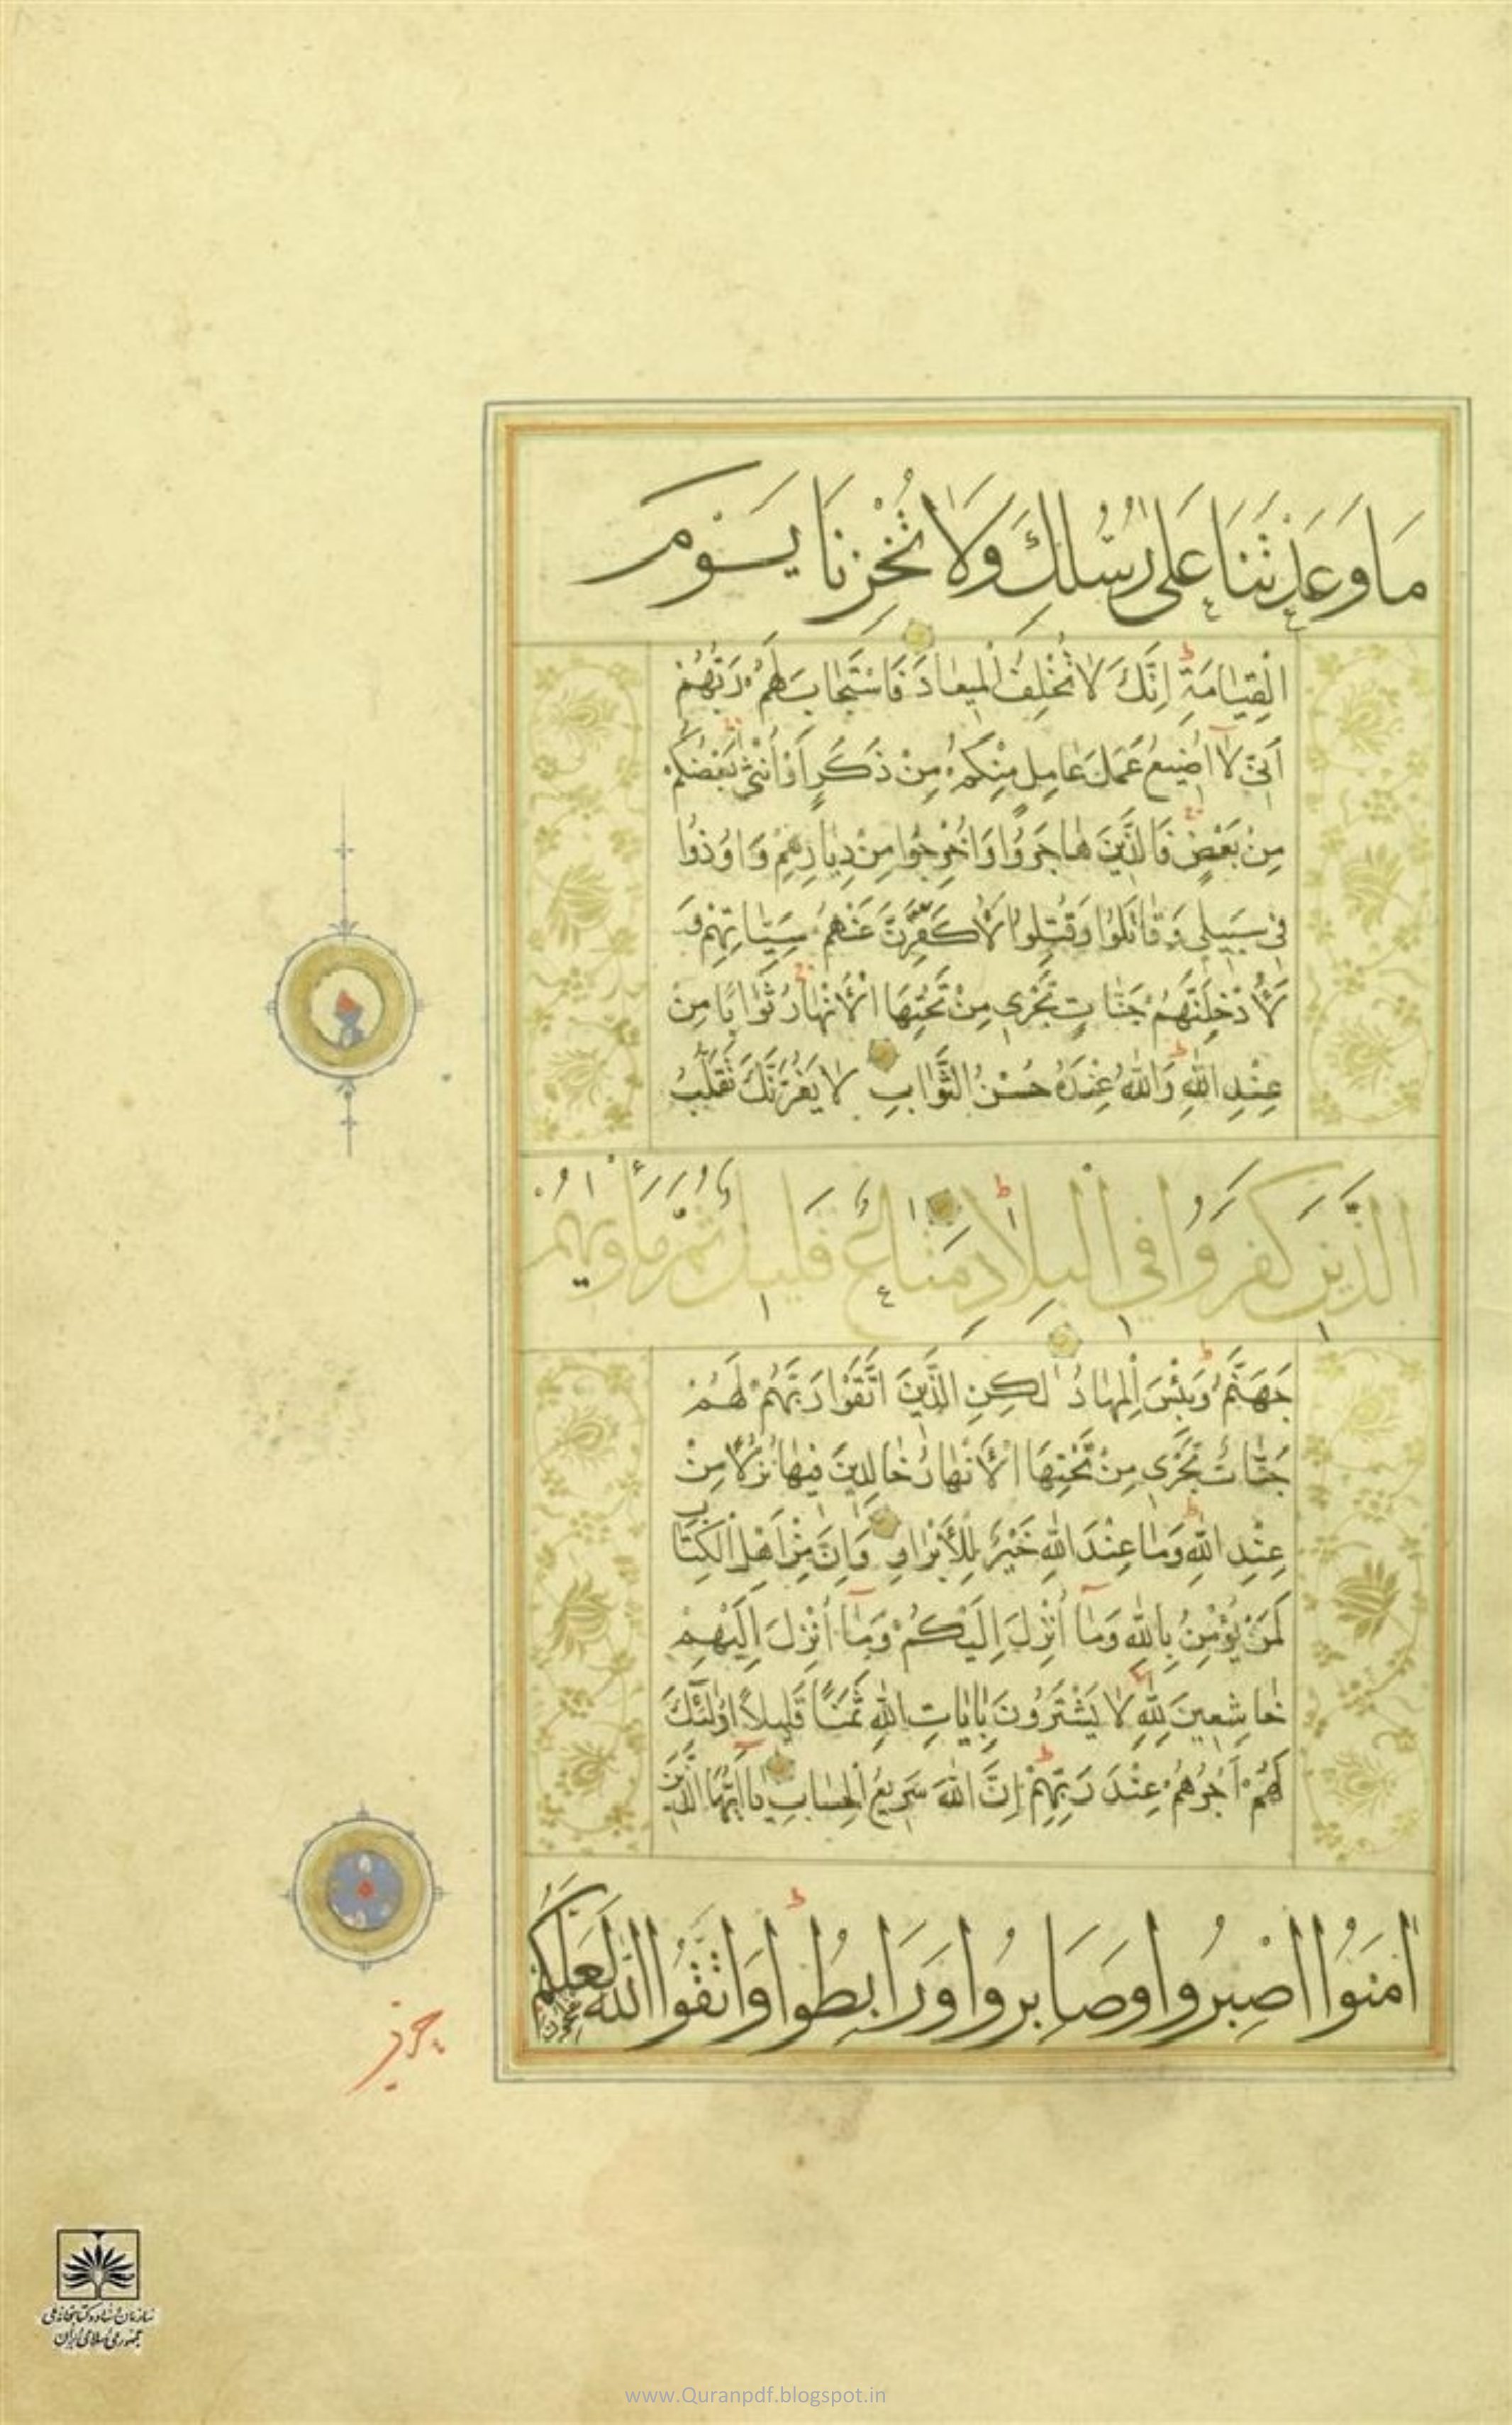 مَا وَعَدْتَنَا عَلٰى رُسُلِكَ وَلَا تُخْزِنَا يَوْمَ
الْقِيٰامَةِ اِنَّكَ لَا تُخْلِفُ الْمِيعٰادَ فَاسْتَجٰابَ لَهُمْ رَبُّهُمْ
اَنّى لَا اُضيعُ عَمَلَ عٰامِلٍ مِنْكُمْ مِنْ ذَكَرٍ اَوْ اُنْثٰى بَعْضُكُمْ
مِنْ بَعْضٍ فَالَّذينَ هٰاجَرُوا وَاُخْرِجُوا مِنْ دِيٰارِهِمْ وَاُوذُوا
فى سَبيلى وَقٰاتَلُوا وَقُتِلُوا لَاُكَفِّرَنَّ عَنْهُمْ سَيِّئٰاتِهِمْ وَ
لَاُدْخِلَنَّهُمْ جَنّٰاتٍ تَجْرى مِنْ تَحْتِهَا الْاَنْهٰارُ ثَوٰابًا مِنْ
عِنْدِ اللّٰهِ وَاللّٰهُ عِنْدَهُ حُسْنُ الثَّوٰابِ لَا يَغُرَّنَّكَ تَقَلُّبُ
الَّذينَ كَفَرُوا فِى الْبِلَادِ مَتٰاعٌ قَليلٌ ثُمَّ مَأْوٰيهُمْ
جَهَنَّمُ وَبِئْسَ الْمِهٰادُ لٰكِنِ الَّذينَ اتَّقَوْا رَبَّهُمْ لَهُمْ
جَنّٰاتٌ تَجْرى مِنْ تَحْتِهَا الْاَنْهٰارُ خٰالِدينَ فيهٰا نُزُلًا مِنْ
عِنْدِ اللّٰهِ وَمٰا عِنْدَ اللّٰهِ خَيْرٌ لِلْاَبْرٰارِ وَاِنَّ مِنْ اَهْلِ الْكِتٰابِ
لَمَنْ يُؤْمِنُ بِاللّٰهِ وَمٰا اُنْزِلَ اِلَيْكُمْ وَمٰا اُنْزِلَ اِلَيْهِمْ
خٰاشِعينَ لِلّٰهِ لَا يَشْتَرُونَ بِاٰيٰاتِ اللّٰهِ ثَمَنًا قَليلًا اُولٰئِكَ
لَهُمْ اَجْرُهُمْ عِنْدَ رَبِّهِمْ اِنَّ اللّٰهَ سَريعُ الْحِسٰابِ يٰا اَيُّهَا الَّذينَ
اٰمَنُوا اصْبِرُوا وَصٰابِرُوا وَرٰابِطُوا وَاتَّقُوا اللّٰهَ لَعَلَّكُمْ
سازمان اسناد و کتابخانه ملی
جمهوری اسلامی ایران
www.Quranpdf.blogspot.in